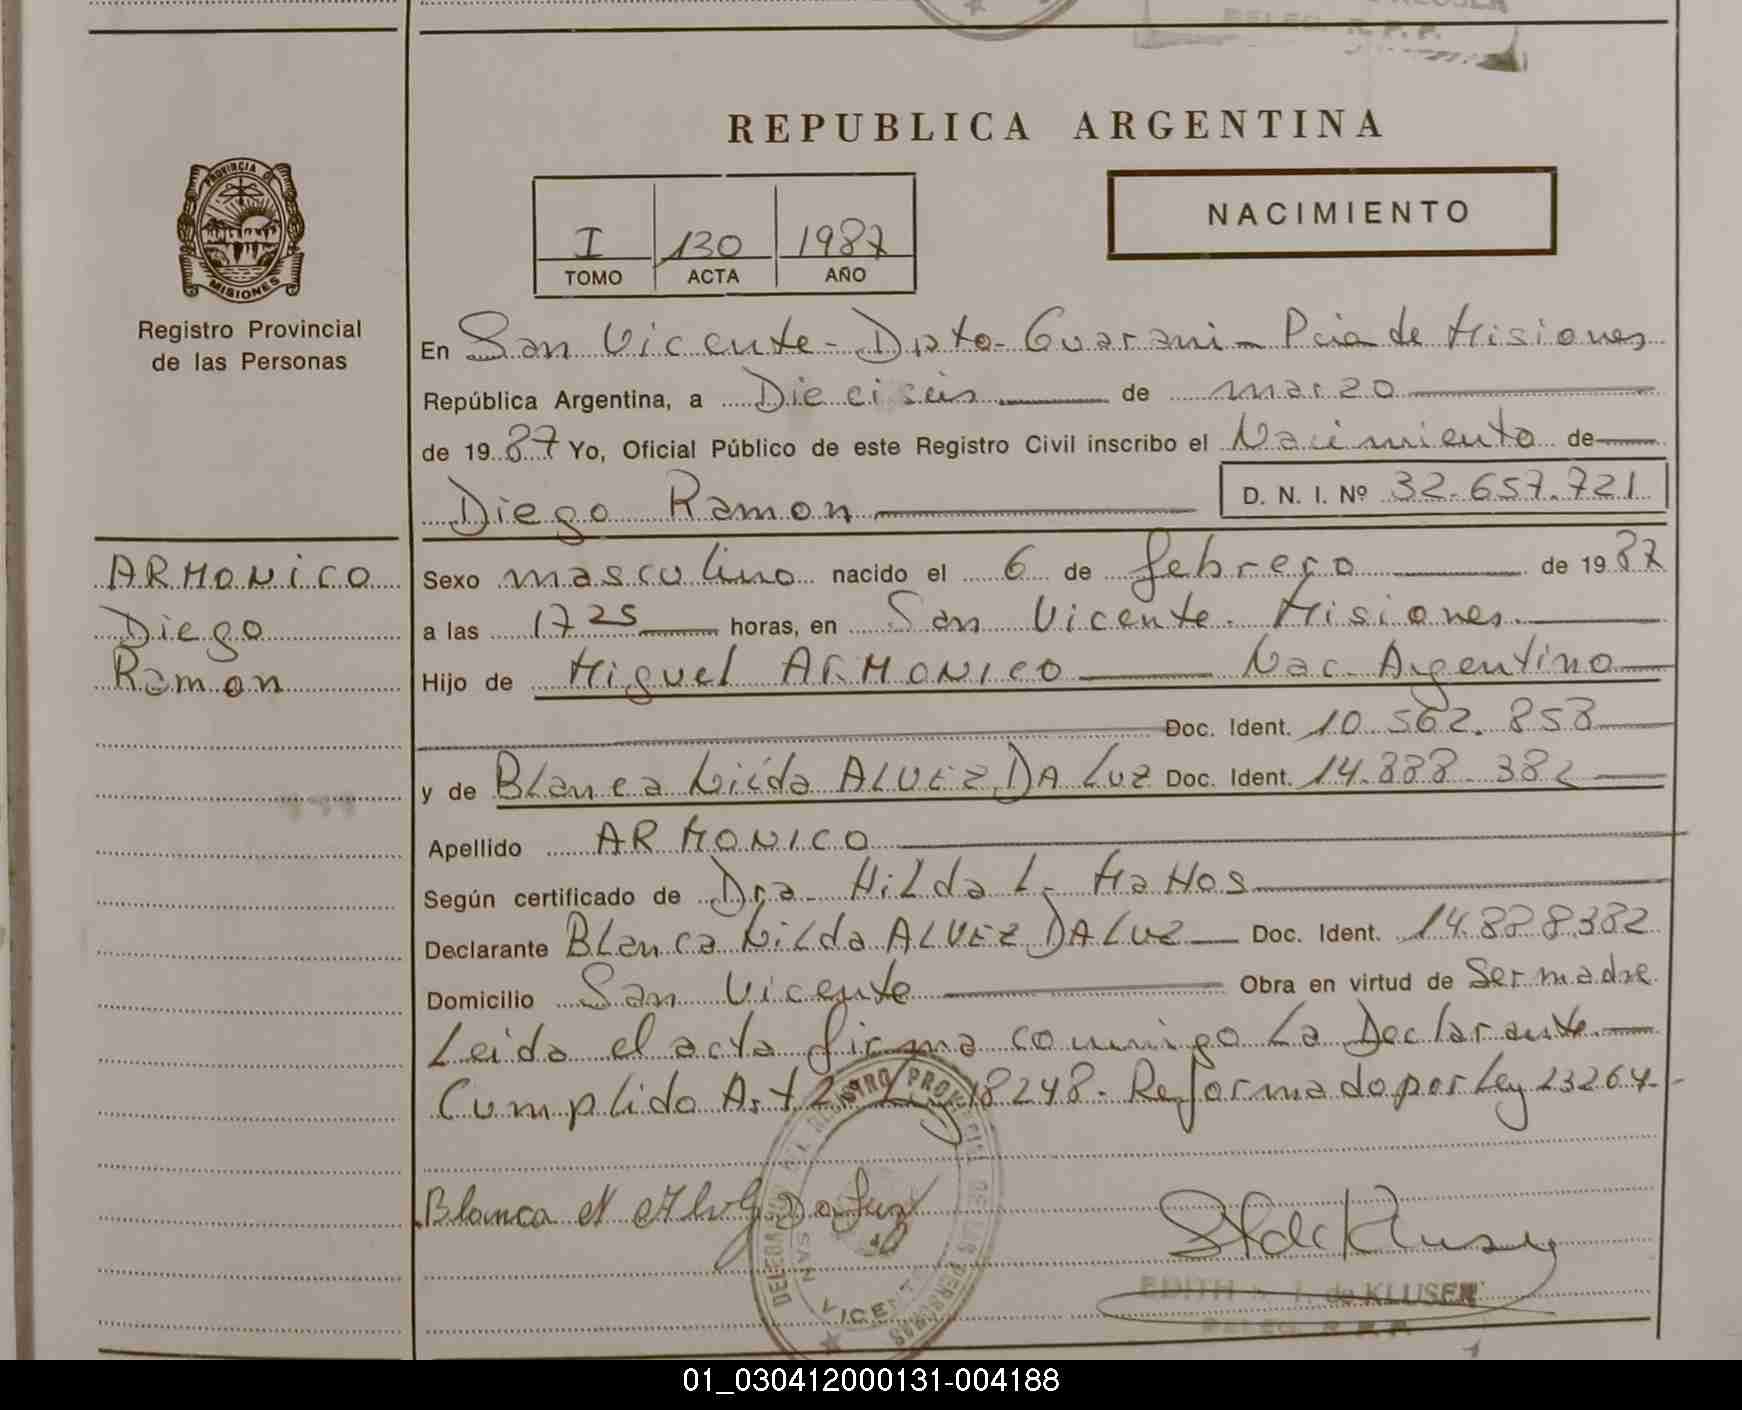 REPUBLICA ARGENTINA
PROVINCIA DE
MISIONES
Registro Provincial
de las Personas
I 130 1987
TOMO ACTA AÑO
NACIMIENTO
En San Vicente - Dpto - Guarani - Pcia de Misiones
República Argentina, a Dieciseis de marzo
de 1987 Yo, Oficial Público de este Registro Civil inscribo el Nacimiento de
Diego Ramon D. N. I. Nº 32.657.721
ARMONICO
Diego
Ramon
Sexo masculino nacido el 6 de febrero de 1987
a las 1725 horas, en San Vicente. Misiones.
Hijo de Miguel ARMONICO Nac. Argentino
Doc. Ident. 10.562.858
y de Blanca Nilda ALVEZ DA LUZ Doc. Ident. 14.888.382
Apellido ARMONICO
Según certificado de Dra. Hilda L. Mattos
Declarante Blanca Nilda ALVEZ DA LUZ Doc. Ident. 14.888.382
Domicilio San Vicente Obra en virtud de Ser madre
Leida el acta firma conmigo La Declarante.
Cumplido Art 2º Ley 18248. Reformado por Ley 23264-
Blanca N Alvez Da Luz
DELEGACION REGISTRO PROVINCIAL DE LAS PERSONAS
SAN VICENTE
EDITH I. de KLUSER
DELEG. R.P.P.
01_030412000131-004188